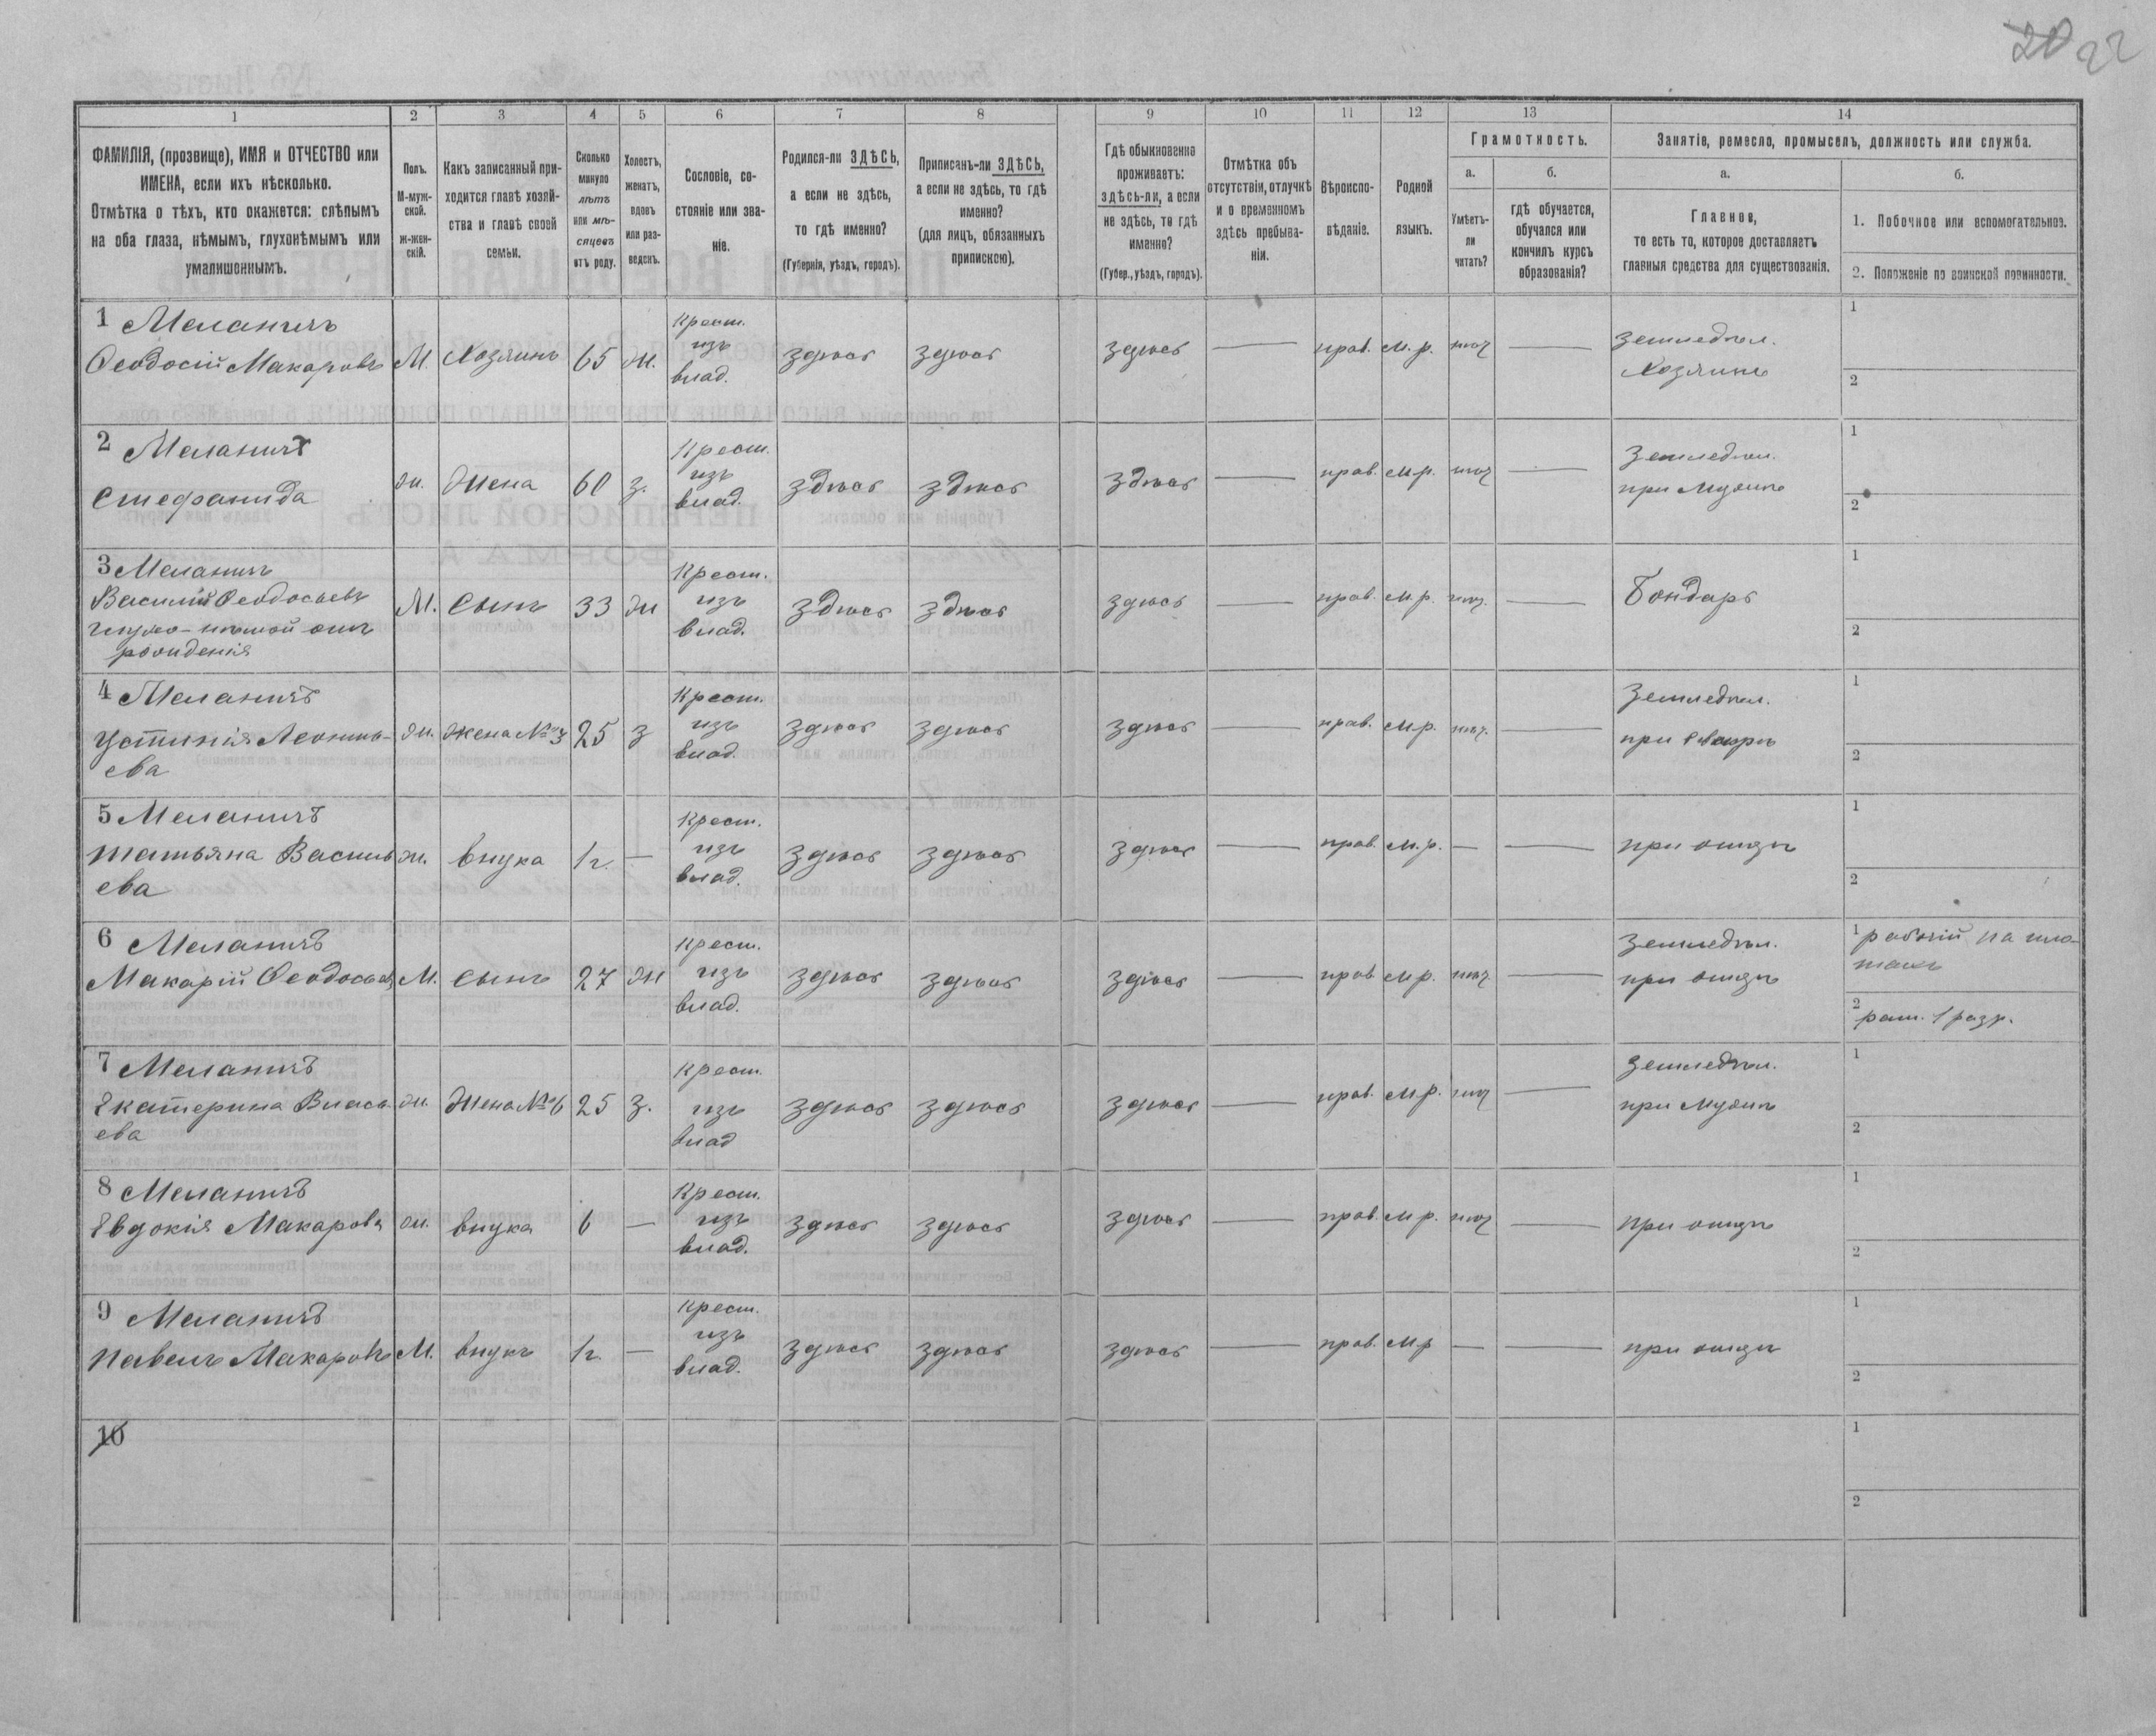 20 22
1 2 3 4 5 6 7 8 9 10 11 12 13 14
ФАМИЛІЯ, (прозвище), ИМЯ и ОТЧЕСТВО или
ИМЕНА, если ихъ нѣсколько.
Отмѣтка о тѣхъ, кто окажется: слѣпымъ
на оба глаза, нѣмымъ, глухонѣмымъ или
умалишоннымъ.
Полъ.
М-муж-
ской.
ж-жен-
скій.
Какъ записанный при-
ходится главѣ хозяй-
ства и главѣ своей
семьи.
Сколько
минуло
лѣтъ
или мѣ-
сяцевъ
отъ роду.
Холостъ,
женатъ,
вдовъ
или раз-
веденъ.
Сословіе, со-
стояніе или зва-
ніе.
Родился-ли ЗДѢСЬ,
а если не здѣсь,
то гдѣ именно?
(Губернія, уѣздъ, городъ).
Приписанъ-ли ЗДѢСЬ,
а если не здѣсь, то гдѣ
именно?
(для лицъ, обязанныхъ
припискою).
Гдѣ обыкновенно
проживаетъ:
здѣсь-ли, а если
не здѣсь, то гдѣ
именно?
(Губер., уѣздъ, городъ).
Отмѣтка объ
отсутствіи, отлучкѣ
и о временномъ
здѣсь пребыва-
ніи.
Вѣроиспо-
вѣданіе.
Родной
языкъ.
Грамотность.
а.
Умѣетъ-
ли
читать?
б.
гдѣ обучается,
обучался или
кончилъ курсъ
образованія?
Занятіе, ремесло, промыселъ, должность или служба.
а.
Главное,
то есть то, которое доставляетъ
главныя средства для существованія.
б.
1. Побочное или вспомогательное.
2. Положеніе по воинской повинности.
1 Меланичъ
Ѳеодосій Макаровъ М. Хозяинъ 65 ж. Крест. изъ влад. здѣсь здѣсь здѣсь — прав. м.р. нѣт — земледѣл. Хозяинъ 1 2
2 Меланичъ
Стефанида ж. Жена 60 з. Крест. изъ влад. здѣсь здѣсь здѣсь — прав. м.р. нѣт — земледѣл. при мужѣ 1 2
3 Меланичъ
Василій Ѳеодосьевъ
глухо-нѣмой отъ
рожденія М. Сынъ 33 ж Крест. изъ влад. здѣсь здѣсь здѣсь — прав. м.р. нѣт. — Бондарь 1 2
4 Меланичъ
Устинія Леонть-
ева ж. жена № 3 25 з Крест. изъ влад. здѣсь здѣсь здѣсь — прав. м.р. нѣт. — земледѣл. при 1 2
5 Меланичъ
Татьяна Василь
ева ж. внука 1 г. — Крест. изъ влад. здѣсь здѣсь здѣсь — прав. м.р. — — при отцѣ 1 2
6 Меланичъ
Макарій Ѳеодосьев М. сынъ 27 ж Крест. изъ влад. здѣсь здѣсь здѣсь — прав м.р. нѣт — земледѣл. при отцѣ 1 рабочій на пло-
тахъ
2 рат. 1 разр.
7 Меланичъ
Екатерина Влась
ева ж. Жена № 6 25 з. Крест. изъ влад здѣсь здѣсь здѣсь — прав. м.р. нѣт — земледѣл. при мужѣ 1 2
8 Меланичъ
Евдокія Макарова ж. внука 6 — Крест. изъ влад. здѣсь здѣсь здѣсь — прав. м.р. нѣт — при отцѣ 1 2
9 Меланичъ
Павелъ Макаровъ М. внукъ 1 г. — Крест. изъ влад. здѣсь здѣсь здѣсь — прав. м.р — — при отцѣ 1 2
10 1 2